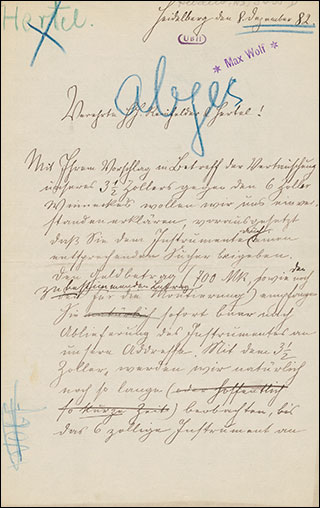 Hertel.
Heidelberg den 8. Dezember 82.
UBH
* Max Wolf *
abges
Verehrte HH. Reinfelder & Hertel!
Mit Ihrem Vorschlag in Betreff der Vertauschung
unseres 3 1/2 Zöllers gegen den 6 Zöller
wollen wir uns einver-
standen erklären, vorausgesetzt
daß Sie dem Instrumente auch einen
entsprechenden Sucher beigeben.
Den Geldbetrag (700 Mk, sowie den noch
zu bestimmenden Betrag
für die Montierung) empfangen
Sie natürlich sofort baar nach
Ablieferung des Instrumentes an
unsere Addresse. Mit dem 3 1/2
Zöller, werden wir natürlich
noch so lange (oder hoffentlich
so kurze Zeit) beobachten, bis
das 6 zöllige Instrument an